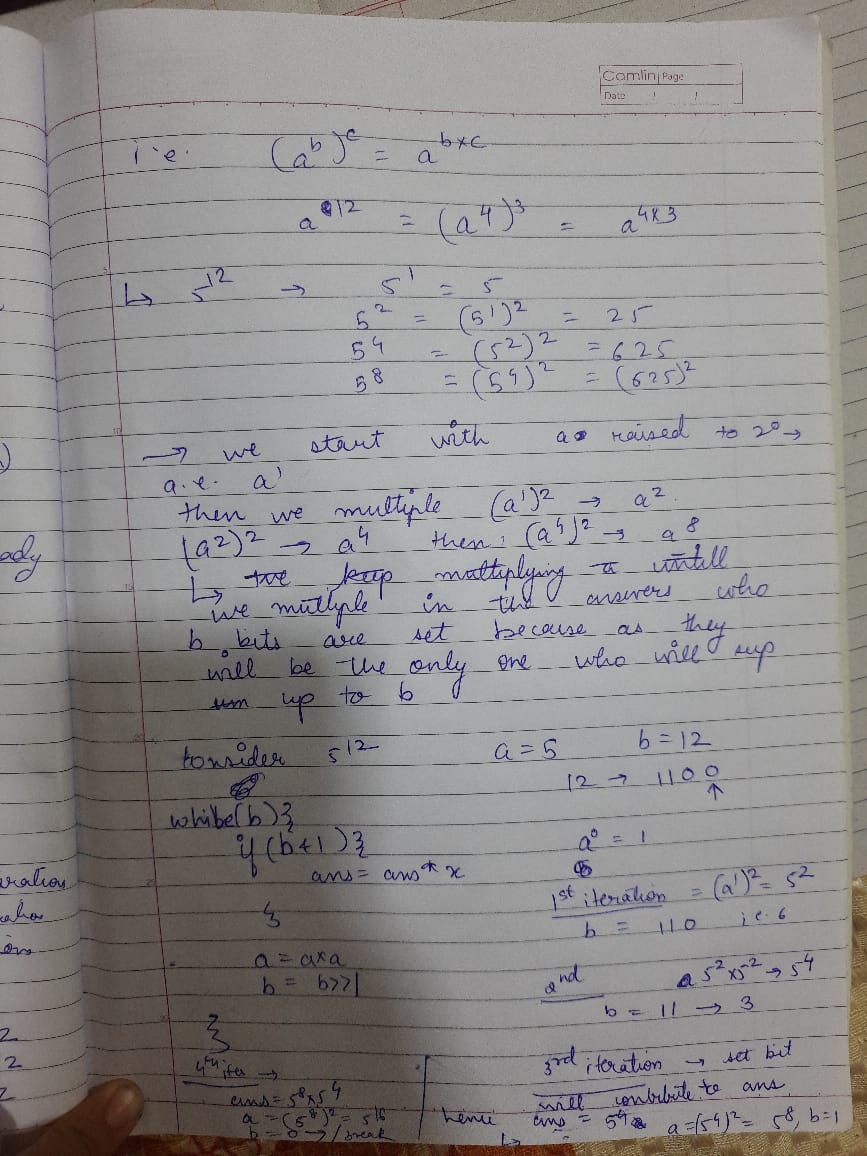 Camlin Page
Date / /
i.e. (a^b)^c = a^b×c
a^12 = (a^4)^3 = a^4×3
↳ 5^12 → 5^1 = 5
5^2 = (5^1)^2 = 25
5^4 = (5^2)^2 = 625
5^8 = (5^4)^2 = (625)^2
→ we start with a raised to 2^0 →
a.e. a^1
then we multiple (a^1)^2 → a^2.
(a^2)^2 → a^4 then, (a^4)^2 → a^8
↳ we keep multiplying a untill
we multiple in the answers who
b bits are set because as they
will be the only one who will sup
um up to b
Consider 5^12 a = 5 b = 12
12 → 1100
↑
while(b){
if (b+1){ a^0 = 1
ans = ans * x
1st iteration = (a^1)^2 = 5^2
} b = 110 i.e. 6
a = a×a
b = b>>1
2nd a 5^2×5^2 → 5^4
b = 11 → 3
}
3rd iteration → set bit
will contribute to ans
hence ans = 5^4 a = (5^4)^2 = 5^8, b=1
↳
4th iter →
ans = 5^8×5^4
a = (5^8)^2 = 5^16
b = 0 → break
ady
eration
2
2